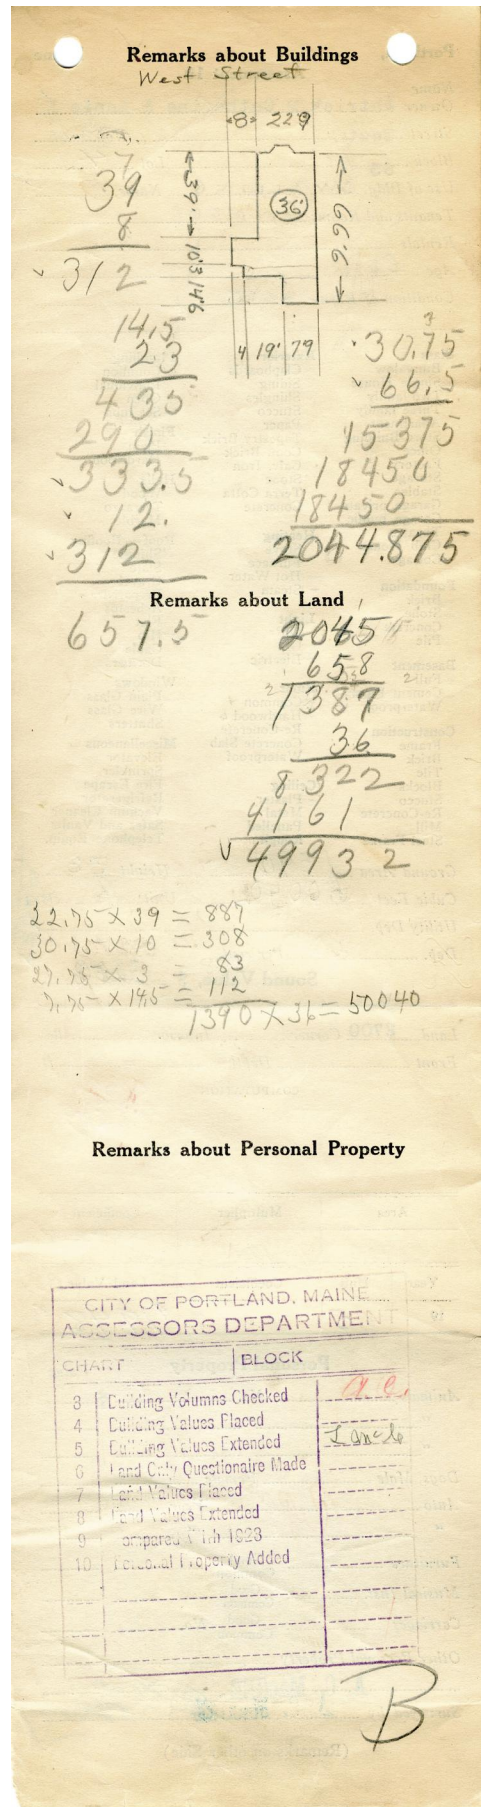 Remarks about Buildings
West Street
8 22'9
7
39
8
312
39' 10'3 14'6
36'
66'6
4 19' 7'9
14.5
23
435
290
333.5
12.
312
657.5
3
30.75
66.5
15375
18450
18450
2044.875
Remarks about Land
2045
658
1387
36
8322
4161
49932
22.75 X 39 = 887
30.75 X 10 = 308
27.75 X 3 = 83
7.75 X 14.5 = 112
1390 X 36 = 50040
Remarks about Personal Property
CITY OF PORTLAND, MAINE
ASSESSORS DEPARTMENT
CHART BLOCK
3 Building Volumns Checked a.c.
4 Building Values Placed
5 Building Values Extended
6 Land Only Questionaire Made
7 Land Values Placed
8 Land Values Extended
9 Compared With 1923
10 Personal Property Added
B